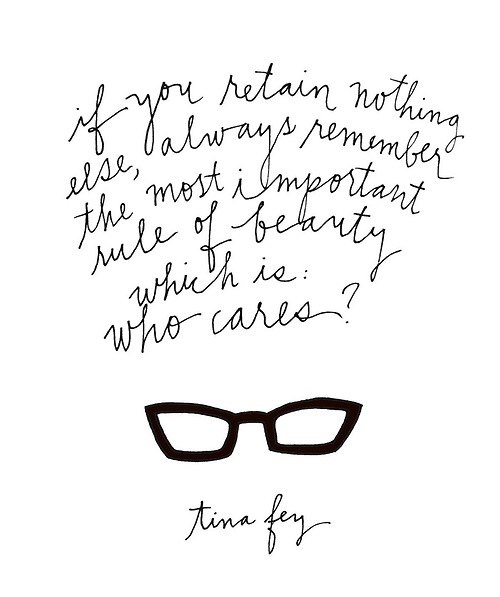 if you retain nothing
else, always remember
the most important
rule of beauty
which is:
who cares?
tina fey